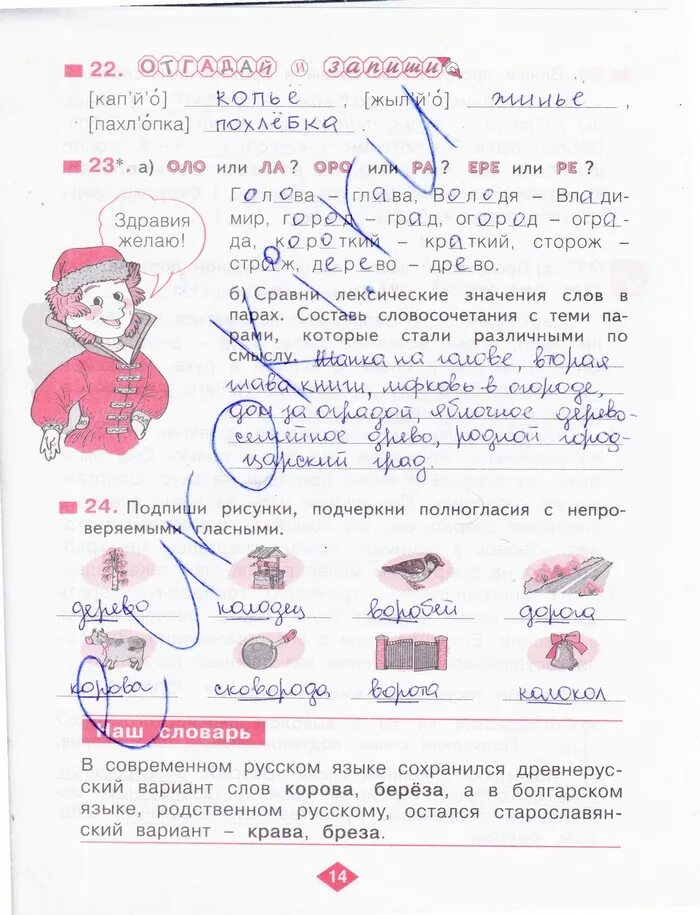 22. ОТГАДАЙ и запиши
[кап'й'о́] копьё, [жыл'й'о́] жильё,
[пахл'о́пка] похлёбка.
23*. а) ОЛО или ЛА? ОРО или РА? ЕРЕ или РЕ?
Голова – глава, Володя – Влади-
мир, город – град, огород – огра-
да, короткий – краткий, сторож –
страж, дерево – древо.
Здравия
желаю!
б) Сравни лексические значения слов в
парах. Составь словосочетания с теми па-
рами, которые стали различными по
смыслу. Шапка на голове, вторая
глава книги, морковь в огороде,
дом за оградой, яблочное дерево-
семейное древо, родной город-
царский град.
24. Подпиши рисунки, подчеркни полногласия с непро-
веряемыми гласными.
дерево колодец воробей дорога
корова сковорода ворота колокол
Наш словарь
В современном русском языке сохранился древнерус-
ский вариант слов корова, берёза, а в болгарском
языке, родственном русскому, остался старославян-
ский вариант – крава, бреза.
14